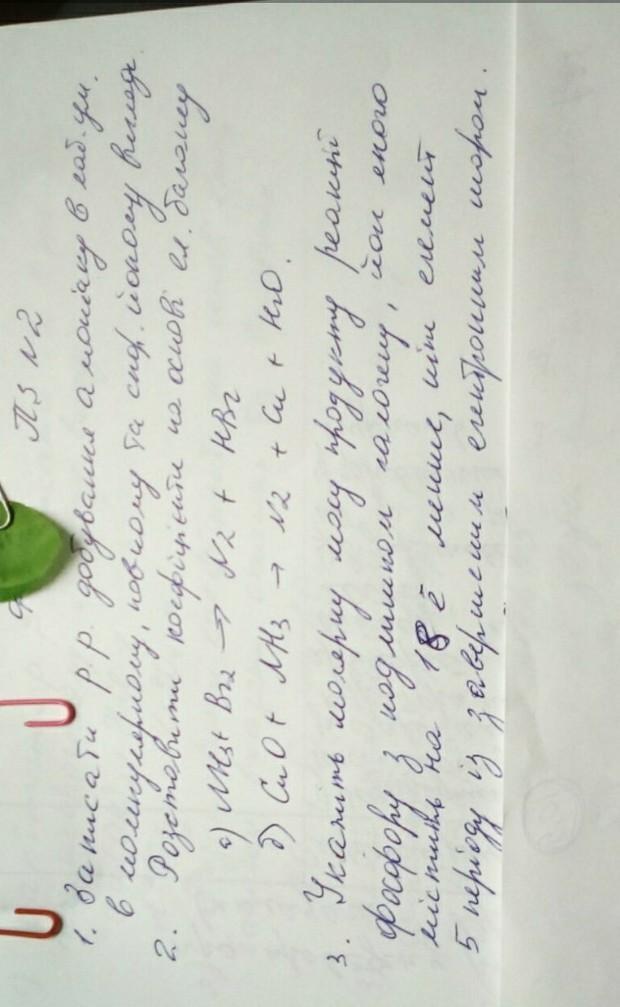 ПЗ №2
1. Записати р.р. добування амоніаку в лаб. ум.
в молекулярному, повному та скор. йоному вигляді.
2. Розставити коефіцієнти на основі ел. балансу
а) NH3 + Br2 → N2 + HBr
б) CuO + NH3 → N2 + Cu + H2O.
3. Укажіть молярну масу продукту реакції
фосфору з надлишком галогену, йон якого
містить на 18 ē менше, ніж елемент
5 періоду із завершеним електронним шаром.